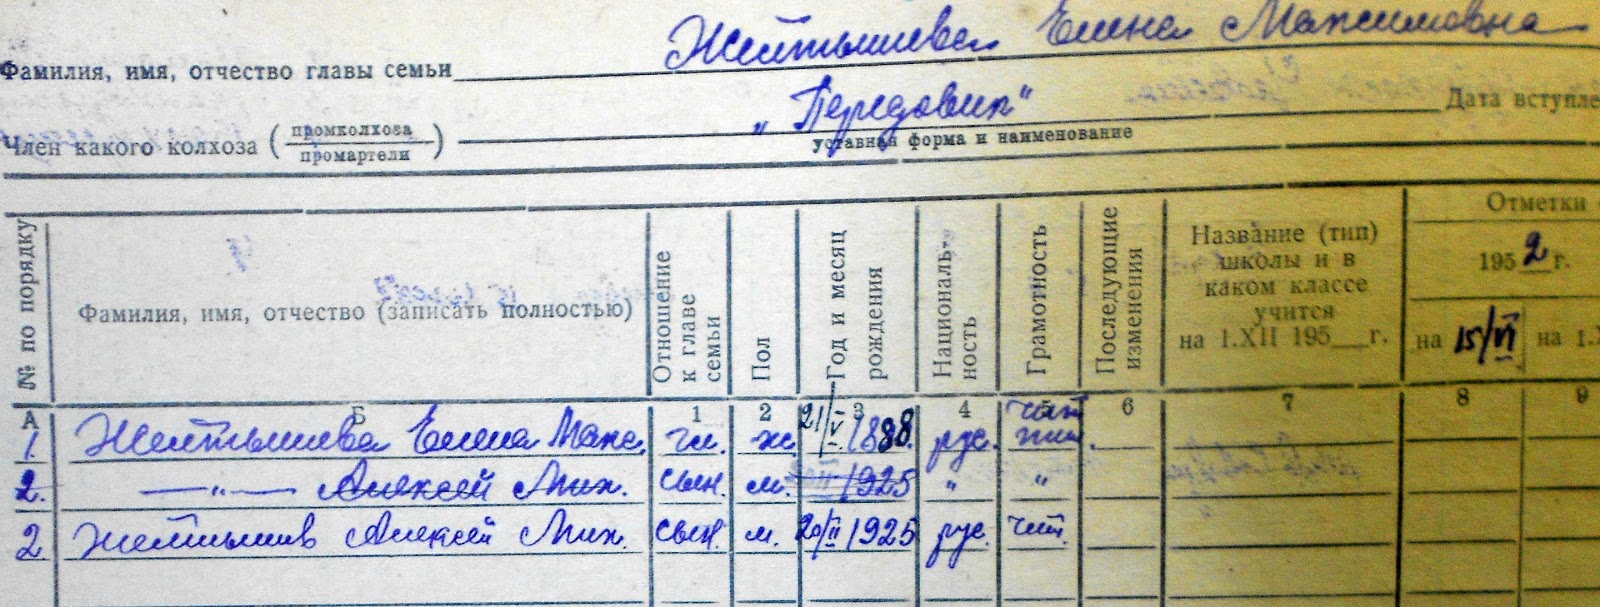 Фамилия, имя, отчество главы семьи Желтышева Елена Максимовна
Член какого колхоза (промколхоза промартели) „Передовик“ Дата вступле
уставная форма и наименование
№ по порядку
Фамилия, имя, отчество (записать полностью)
Отношение к главе семьи
Пол
Год и месяц рождения
Националь-ность
Грамотность
Последующие изменения
Название (тип)
школы и в
каком классе
учится
на 1.XII 195 г.
Отметки
1952 г.
на 15/VI на 1.X
А Б 1 2 3 4 5 6 7 8 9
1. Желтышева Елена Макс. гл. ж. 21/V 1888. рус. чит.
2. —"— Алексей Мих. сын. м. 1925 " "
2 Желтышев Алексей Мих. сын. м. 20/II 1925 рус. чит.